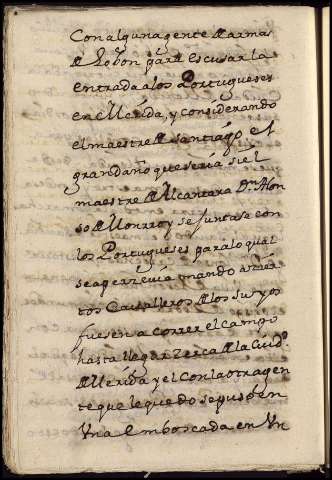 Con alguna gente de armas
de Lobon para escusar la
entrada a los Portugueses
en Merida, y considerando
el maestre de santiago el
gran daño que seria si el
maestre de Alcantara Dn. Alon
so de Monrroy se juntase con
los Portugueses para lo qual
se aperzevia mando a
tos Cavalleros de los suyos
fuesen a correr el campo
hasta llegar zerca de la Ciud.
de Merida y el con la otra gen
te que le quedo se puso en
Vna emboscada en Vn